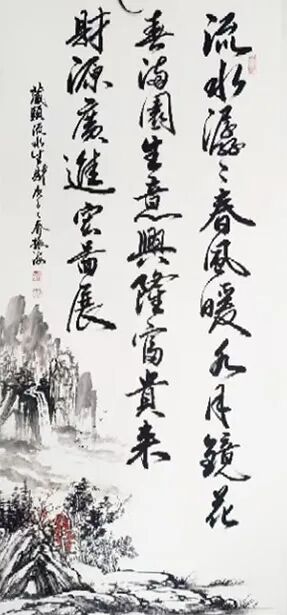 流水潺々春風暖水月鏡花
春滿園生意興隆富貴来
財源廣進宏圖展
藏頭流水生財